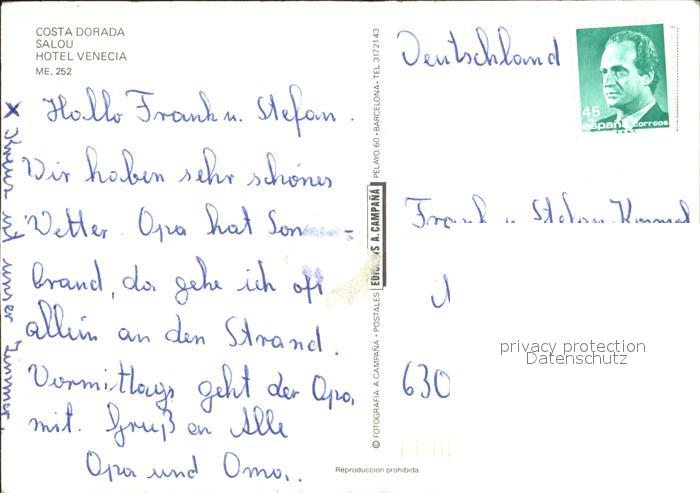 COSTA DORADA
SALOU
HOTEL VENECIA
ME. 252
Hallo Frank u. Stefan.
Wir haben sehr schönes
Wetter. Opa hat Son-
brand, da gehe ich oft
allein an den Strand.
Vormittags geht der Opa
mit. Gruß an Alle
Opa und Oma.
x Kreuz ist unser Zimmer.
© FOTOGRAFIA A. CAMPAÑA - POSTALES EDICIONES A. CAMPAÑA PELAYO 60 - BARCELONA - TEL. 3172143
Reproduccion prohibida
Deutschland
45
España correos
Frank u Stefan
630
privacy protection
Datenschutz